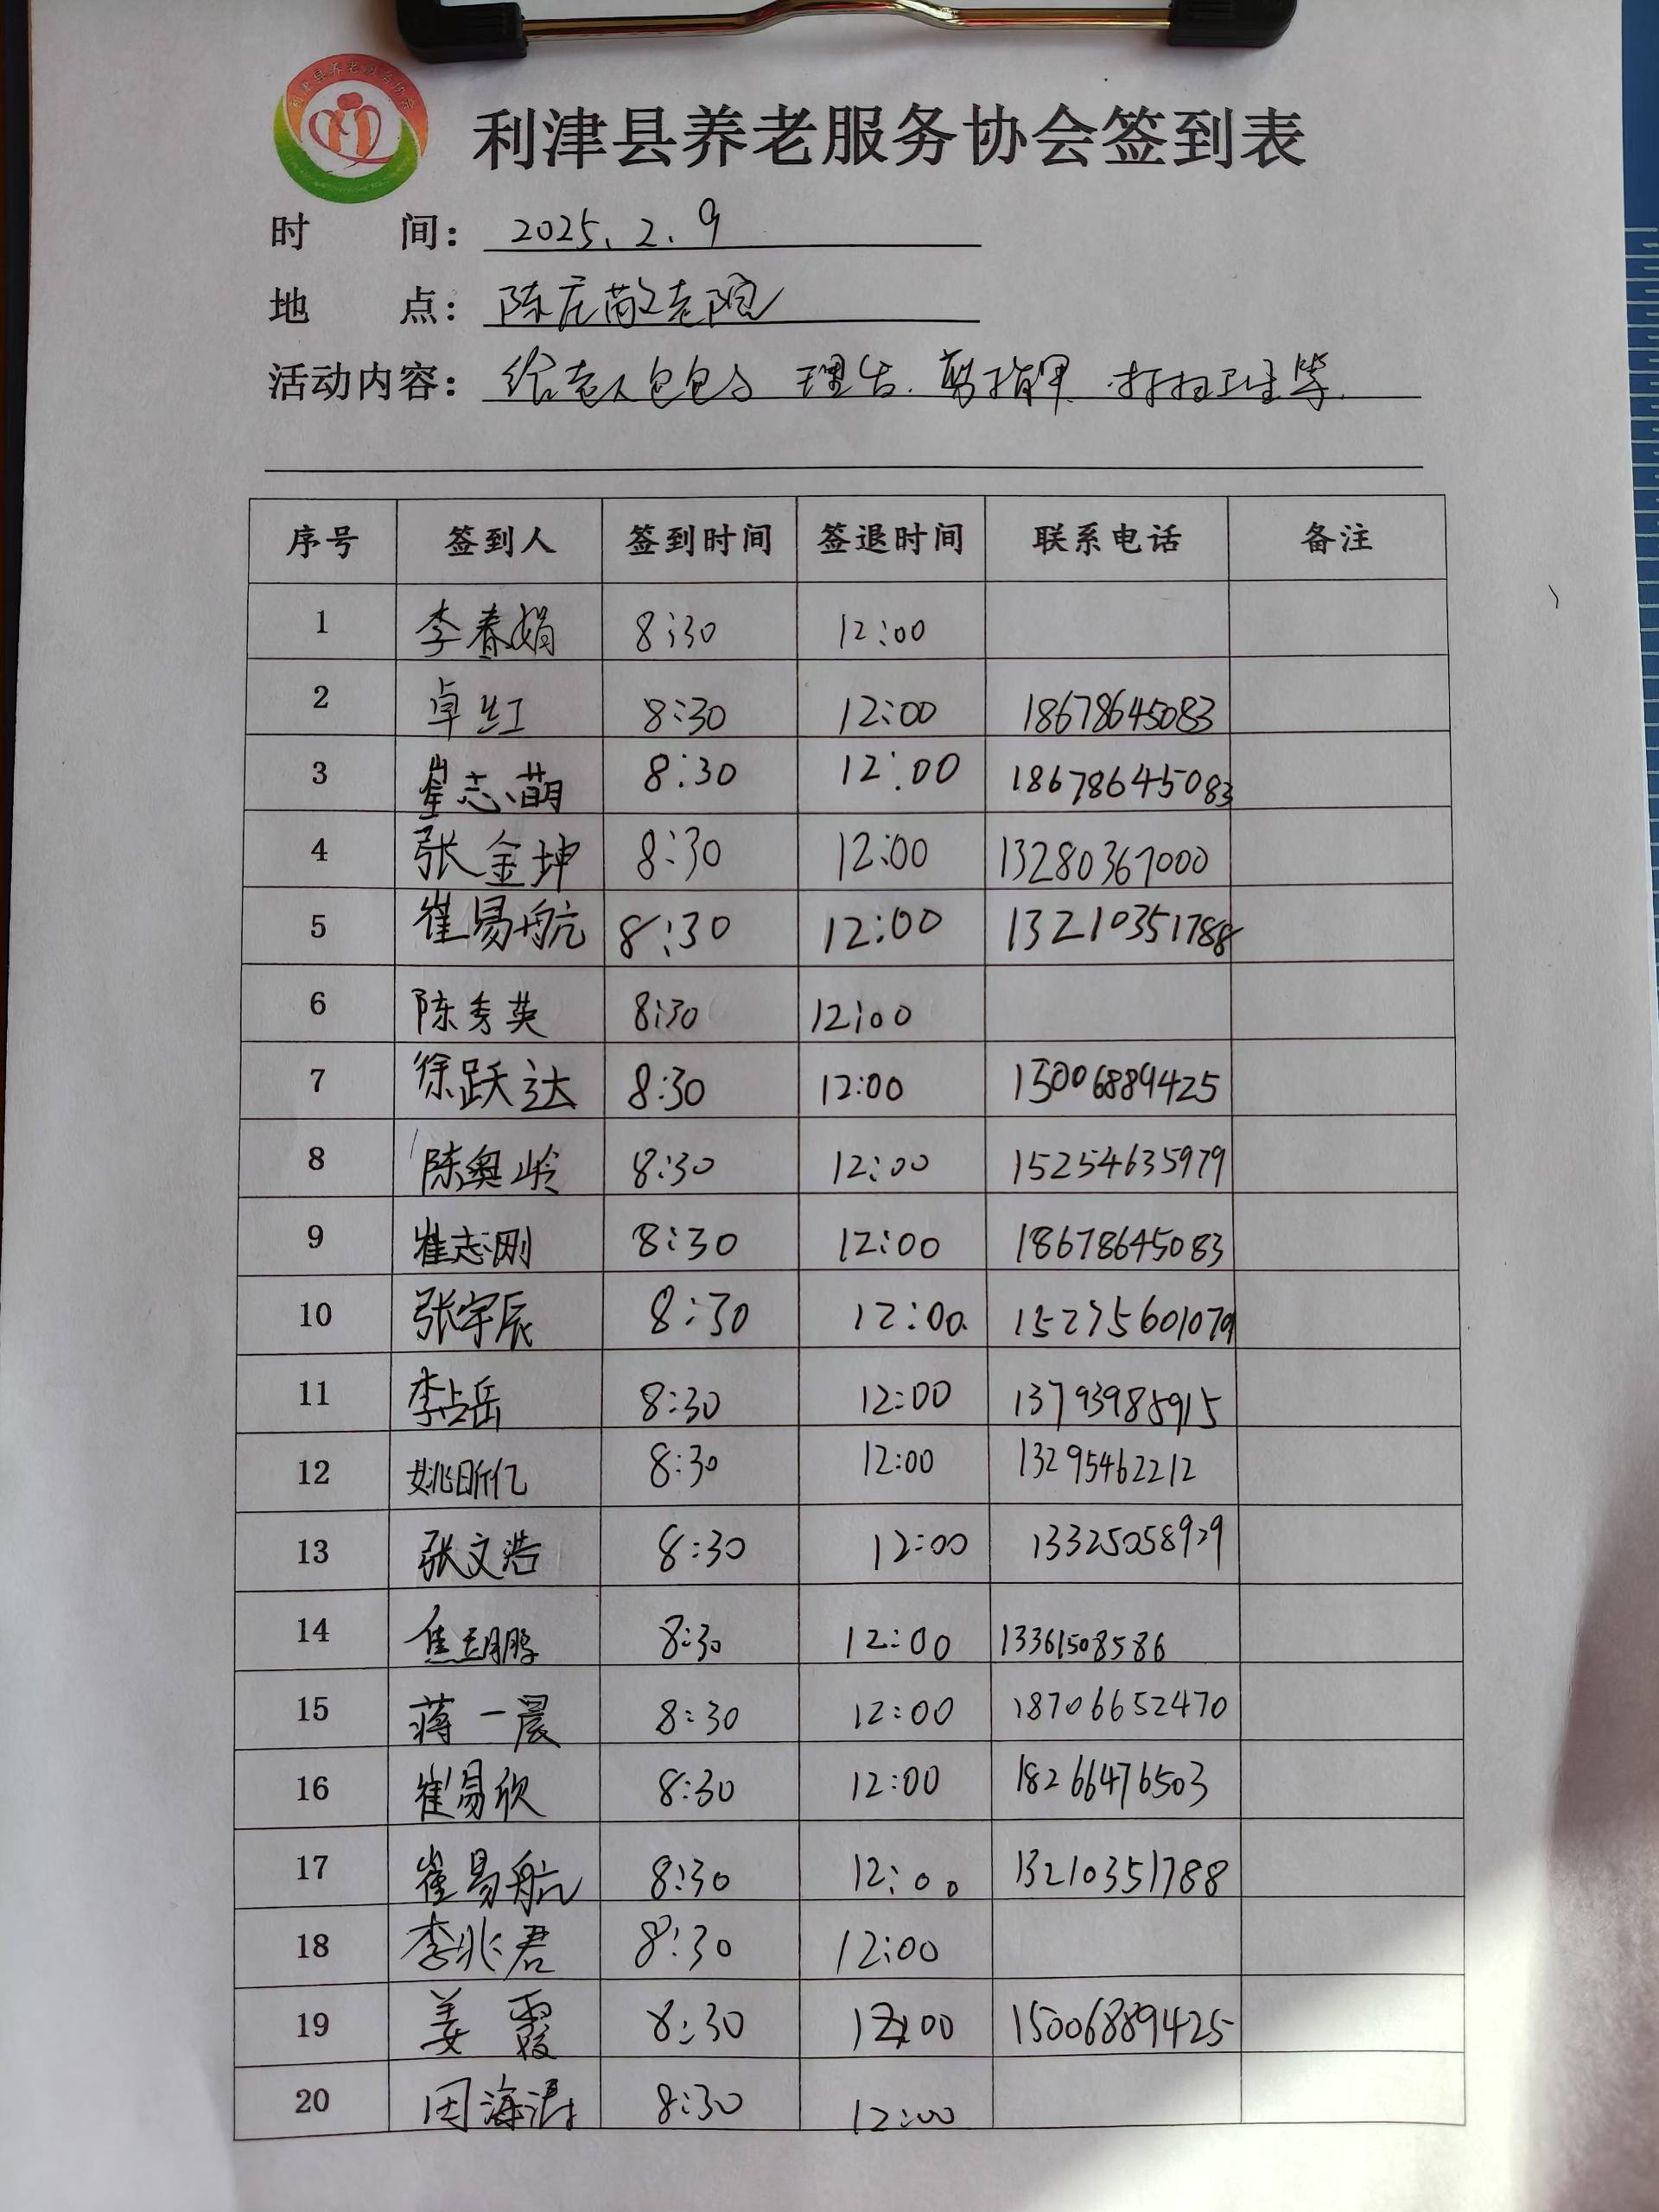 利津县养老服务协会
利津县养老服务协会签到表
时 间：2025.2.9
地 点：陈庄敬老院
活动内容：给老人包包子 理发.剪指甲.打扫卫生等.
序号 签到人 签到时间 签退时间 联系电话 备注
1 李春娟 8:30 12:00
2 卓红 8:30 12:00 18678645083
3 崔志萌 8:30 12:00 18678645083
4 张金坤 8:30 12:00 13280367000
5 崔易航 8:30 12:00 13210351788
6 陈秀英 8:30 12:00
7 徐跃达 8:30 12:00 15006889425
8 陈奥岭 8:30 12:00 15254635979
9 崔志刚 8:30 12:00 18678645083
10 张宇辰 8:30 12:00 15275601079
11 李占岳 8:30 12:00 13793985915
12 姚昕亿 8:30 12:00 13295462212
13 张文浩 8:30 12:00 13325058929
14 焦 鹏 8:30 12:00 13361508586
15 蒋一晨 8:30 12:00 18706652470
16 崔易欣 8:30 12:00 18266476503
17 崔易航 8:30 12:00 13210351788
18 李兆君 8:30 12:00
19 姜霞 8:30 12:00 15006889425
20 周海涛 8:30 12:00